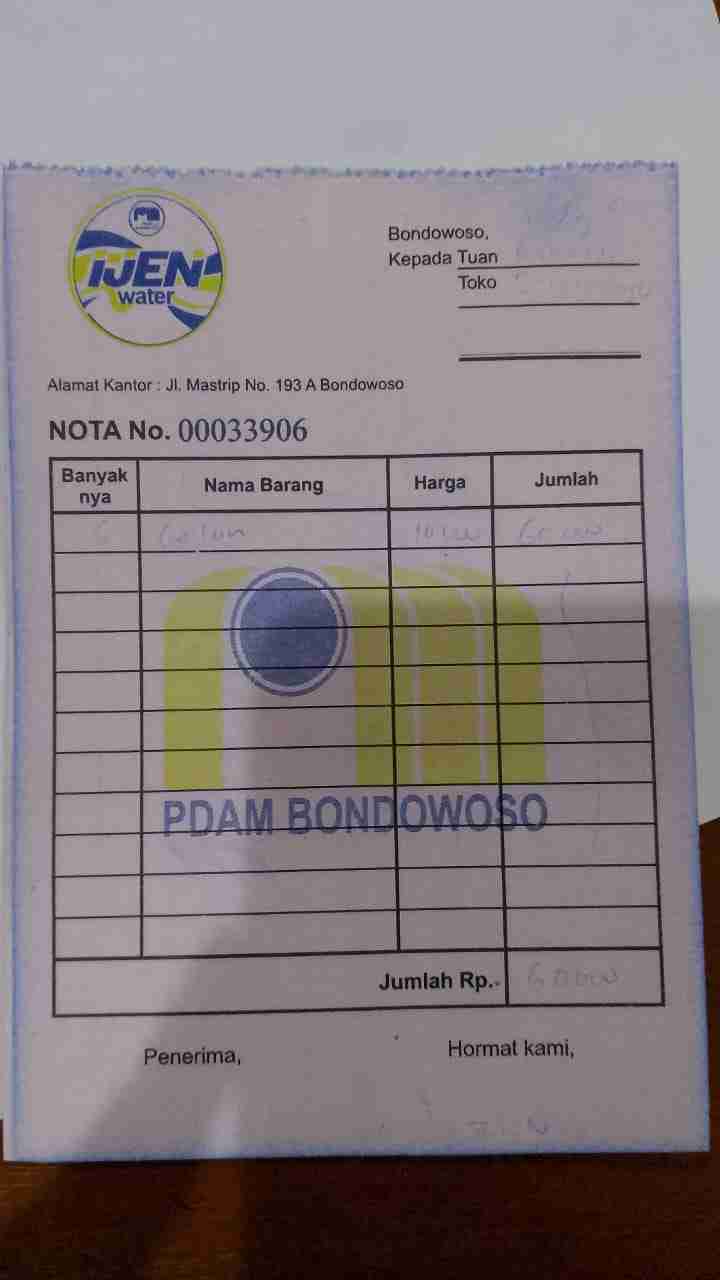 IJEN
water
Bondowoso,
Kepada Tuan
Toko
Alamat Kantor : Jl. Mastrip No. 193 A Bondowoso
NOTA No. 00033906
Banyak nya Nama Barang Harga Jumlah
6 Galon 10.000 60.000
PDAM BONDOWOSO
Jumlah Rp.- 60.000
Penerima, Hormat kami,